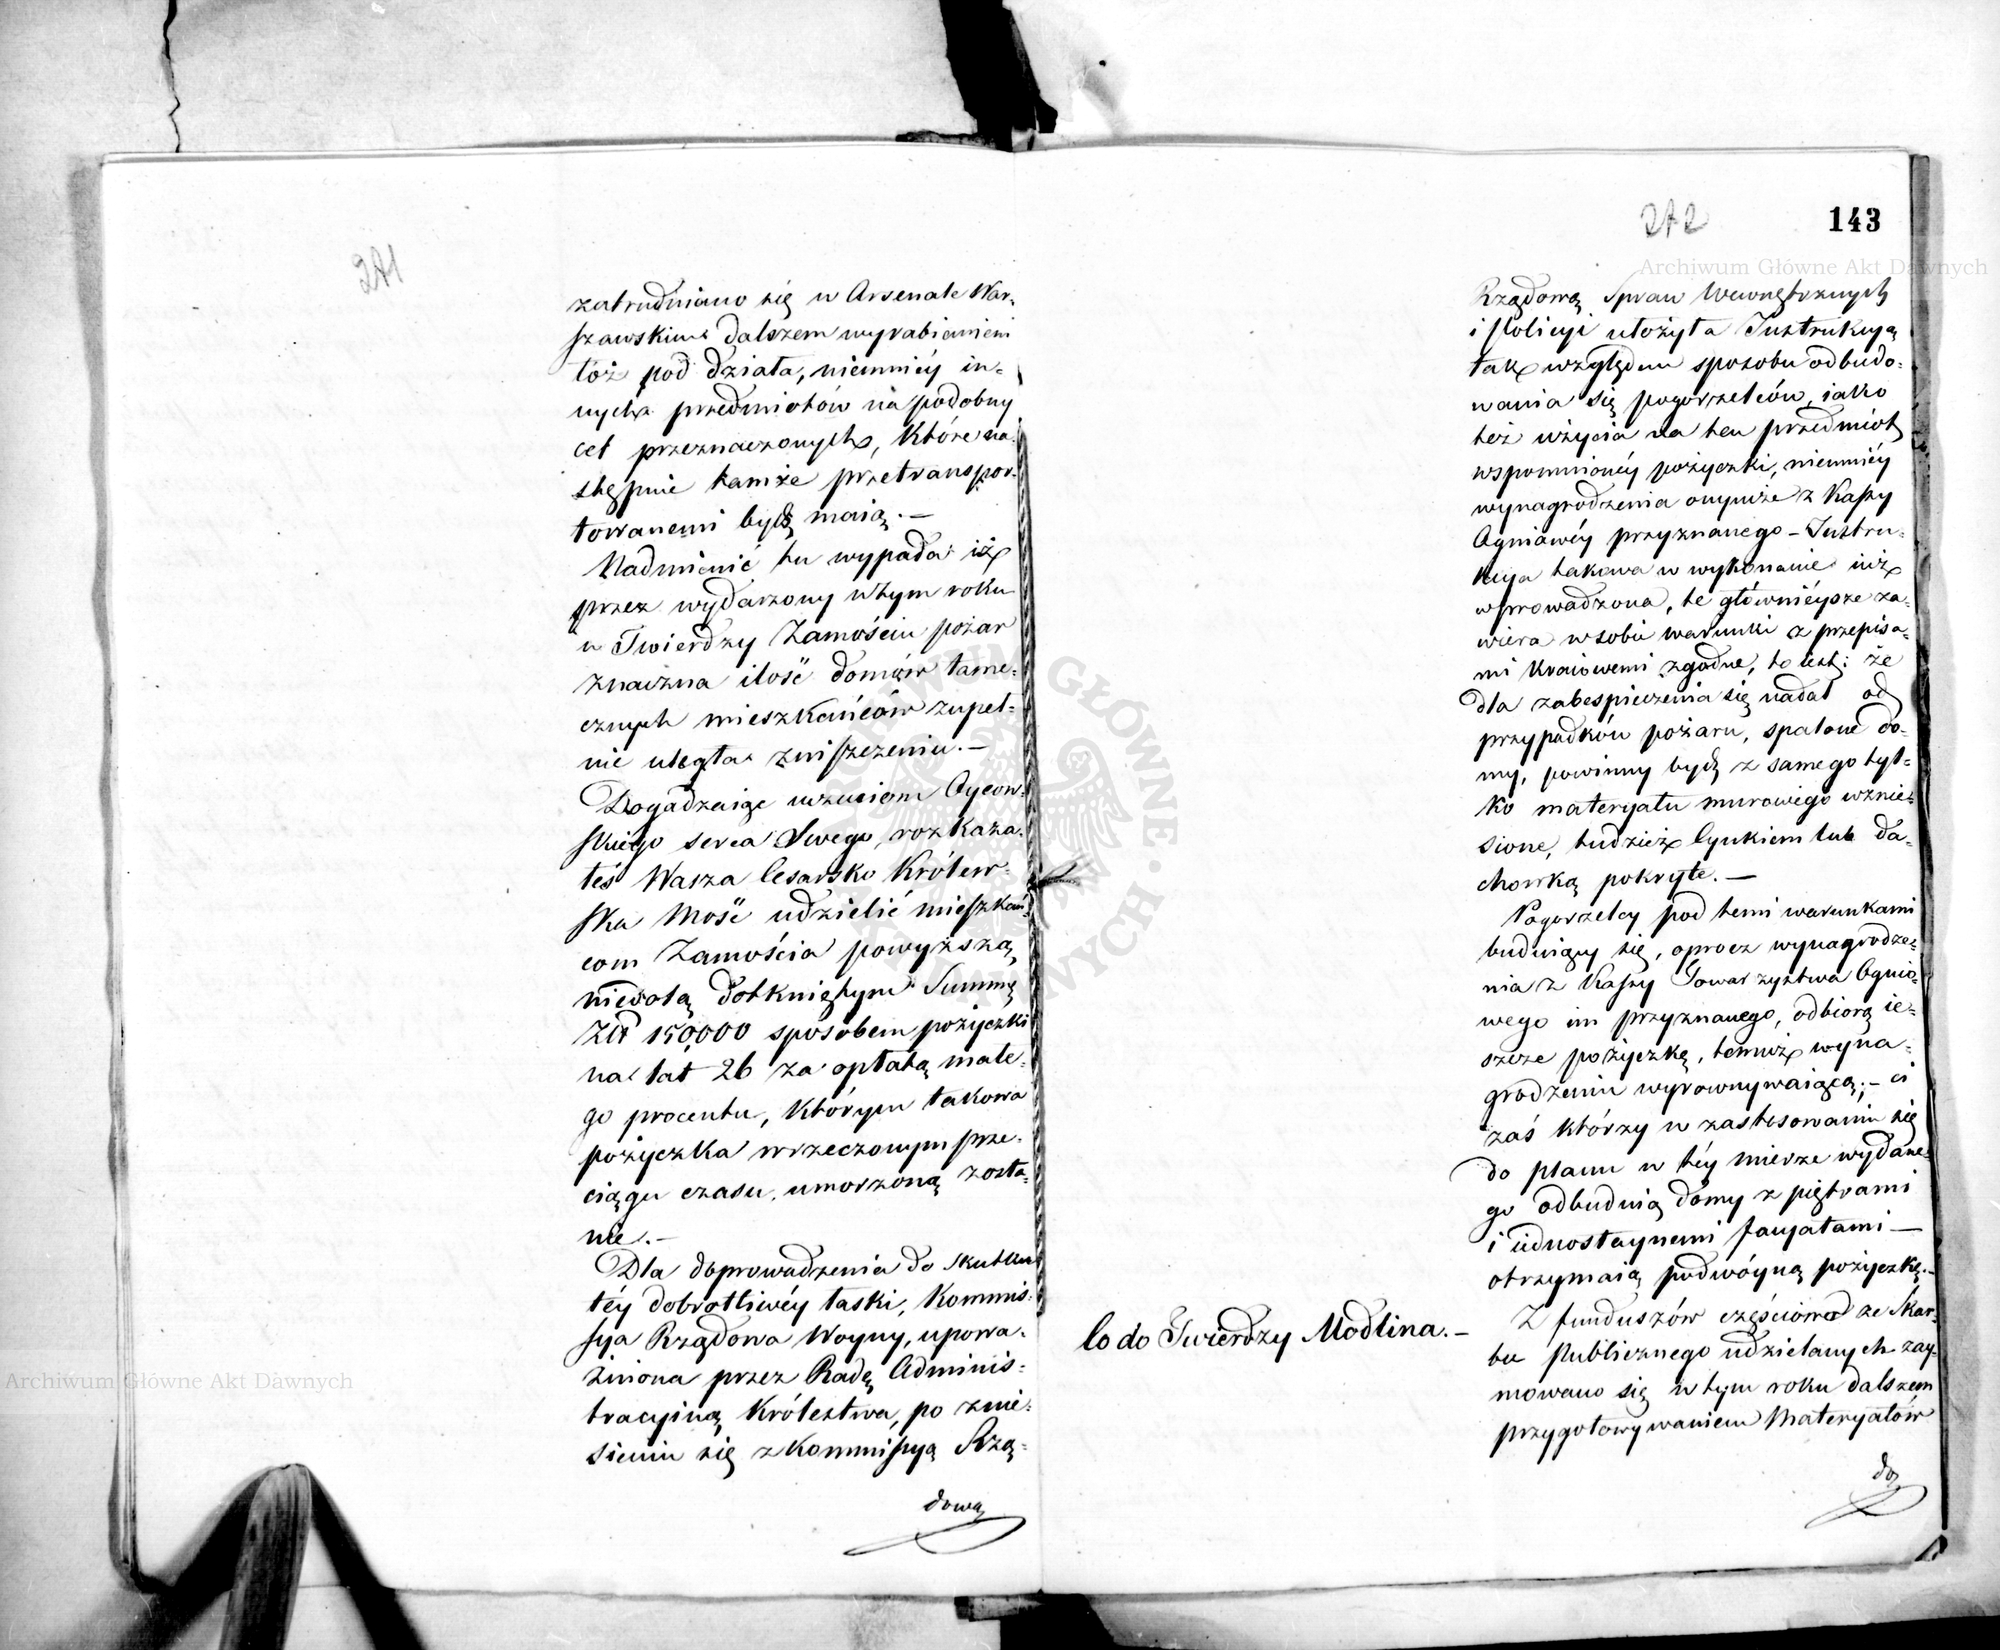 271
zatrudniano się w Arsenale War-
szawskim dalszem wyrabianiem
łóż pod działa, niemniéy in-
nych przedmiotów na podobny
cel przeznaczonych, które na-
stępnie tamże przetranspor-
towanemi bydź maią.—
Nadmienić tu wypada iż
przez wydarzony w tym roku
w Twierdzy Zamościu pożar
znaczna ilość domów tame-
cznych mieszkańców zupeł-
nie uległa zniszczeniu.—
Dogadzaiąc uczuciom Oycow-
skiego serca Swego, rozkaza-
łeś Wasza Cesarsko Królew-
ska Mość udzielić mieszkań-
com Zamościa powyższą
niedolą dotkniętym Summę
Złt 150,000 sposobem pożyczki
na lat 26 za opłatą małe-
go procentu, którym takowa
pożyczka w rzeczonym prze-
ciągu czasu, umorzoną zosta-
nie.—
Dla doprowadzenia do skutku
téy dobrotliwéy łaski, Kommis-
sya Rządowa Woyny, upowa-
żniona przez Radę Adminis-
tracyiną Królestwa, po znie-
sieniu się z Kommissyą Rzą-
dową
272
143
Rządową Spraw Wewnętrznych
i Policyi ułożyła Instrukcyą
tak względem sposobu odbudo-
wania się pogorzelców, iako
też użycia na ten przedmiot
wspomnionéy pożyczki, niemniéy
wynagrodzenia onymże z Kassy
Ogniowéy przyznanego – Instru-
kcya takowa w wykonanie iuż
wprowadzona, te główniéysze za-
wiera w sobie warunki z przepisa-
mi kraiowemi zgodne, to iest: że
dla zabespieczenia się nadal od
przypadków pożaru, spalone do-
my, powinny bydź z samego tyl-
ko materyału murowego wznie-
sione, tudzież Cynkiem lub da-
chówką pokryte.—
Pogorzelcy pod temi warunkami
buduiący się, oprocz wynagrodze-
nia z Kassy Towarzystwa Ognio-
wego im przyznanego, odbiorą ie-
szcze pożyczkę, temuż wyna-
grodzeniu wyrownywaiącą;– ci
zaś którzy w zastosowaniu się
do planu w téy mierze wydane-
go odbuduią domy z piętrami
i iednostaynemi facyatami —
otrzymaią podwóyną pożyczkę.—
Co do Twierdzy Modlina.—
Z funduszów częściowo ze Skar-
bu publicznego udzielanych zay-
mowano się w tym roku dalszem
przygotowywaniem Materyałów
do
Archiwum Główne Akt Dawnych
Archiwum Główne Akt Dawnych
ARCHIWUM GŁÓWNE AKT DAWNYCH